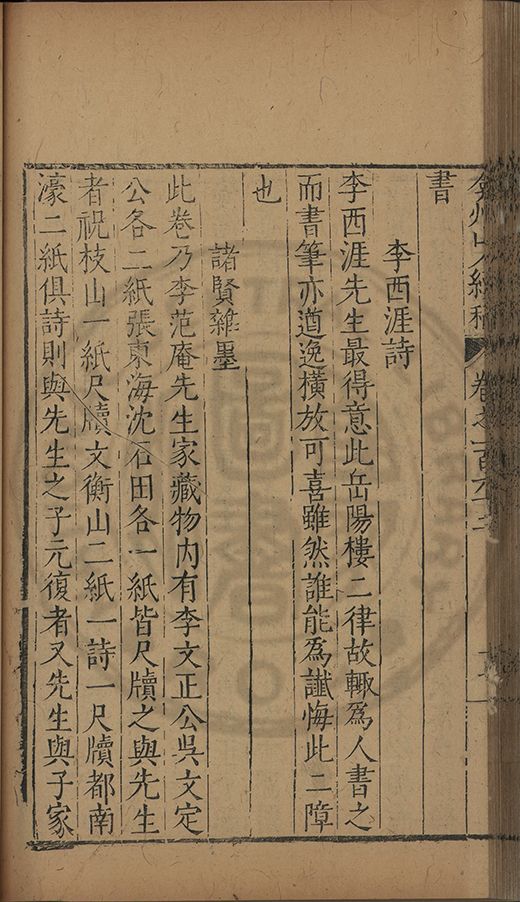 弇州山人續稿
卷之一百六十二
書
李西涯詩
李西涯先生最得意此岳陽樓二律故輙爲人書之
而書筆亦遒逸橫放可喜雖然誰能爲讖悔此二障
也
諸賢雜墨
此卷乃李范庵先生家藏物内有李文正公吳文定
公各二紙張東海沈石田各一紙皆尺牘之與先生
者祝枝山一紙尺牘文衡山二紙一詩一尺牘都南
濠二紙俱詩則與先生之子元復者又先生與子家